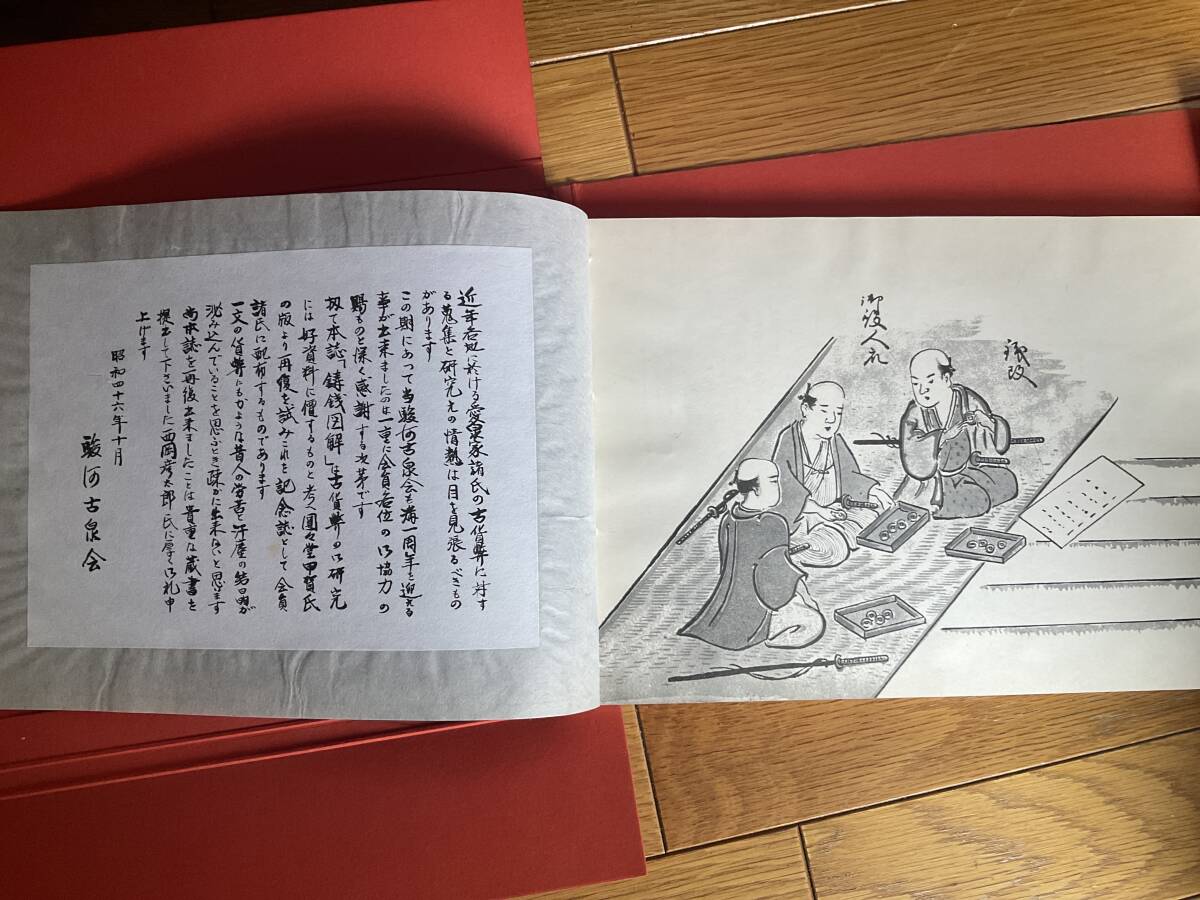 近年各地に於ける愛泉家諸氏の古貨幣に対す
る蒐集と研究えの情熱は目を見張るべきもの
があります
この期にあって当駿河古泉会も満一周年を迎える
事が出来ましたのは一重に会員各位の御協力の
賜ものと深く感謝する次第です
扨て本誌「鋳銭図解」は古貨幣の御研究
には好資料に價するものと考へ圓々堂甲賀氏
の版より再復を試みこれを記念誌として会員
諸氏に配布するものであります
一文の貨幣にもかような昔人の労苦と汗塵の結晶が
沁み込んでいることを思ふとき疎かに出来ないと思います
尚本誌を再復出来ましたことは貴重な蔵書を
提出して下さいました西岡彦太郎氏に厚く御礼申
上げます
昭和四十六年十月
駿河古泉会
御役人衆
銭改